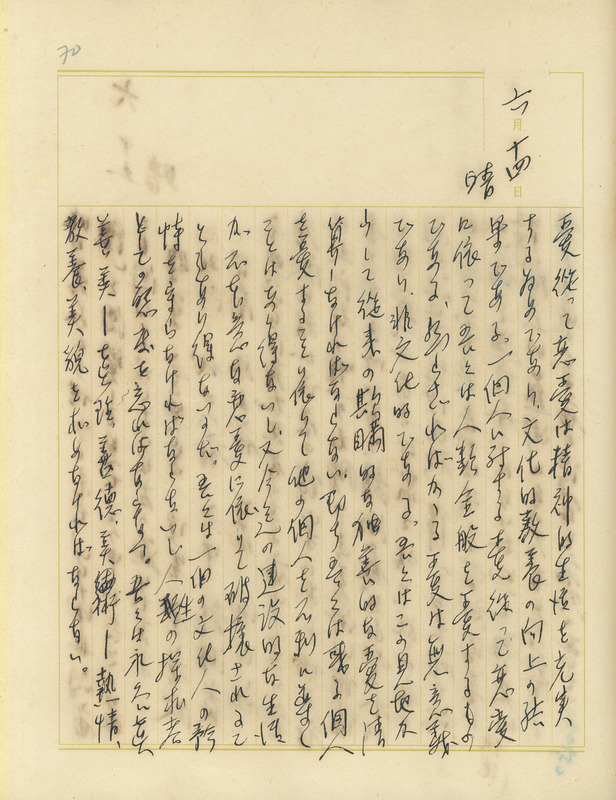 70
六月十四日
晴
愛従って恋愛は精神的生活を充実
するためであり、文化的教養の向上の結
果である。一個人に対する愛従って恋愛
に依って吾々は人類全般を愛するもの
である、然らざればかゝる愛は無意義
であり、非文化的である。吾々はこの見地か
らして従来の欺瞞的な独善的な愛を清
算しなければならない。即ち吾々は或る個人
を愛することに依りて他の個人を不利に導く
ことはあり得ないし、又今迄の建設的な生活
が不必要な恋愛に依りて破壊されるこ
ともあり得ないのだ。吾々は一個の文化人の矜
恃を守らなければならないし、人類の探求者
としての態度を忘れはならない。吾々は永久に真
善美―真理、善徳、美術―熱情、
教養、美貌を求めなければならない。